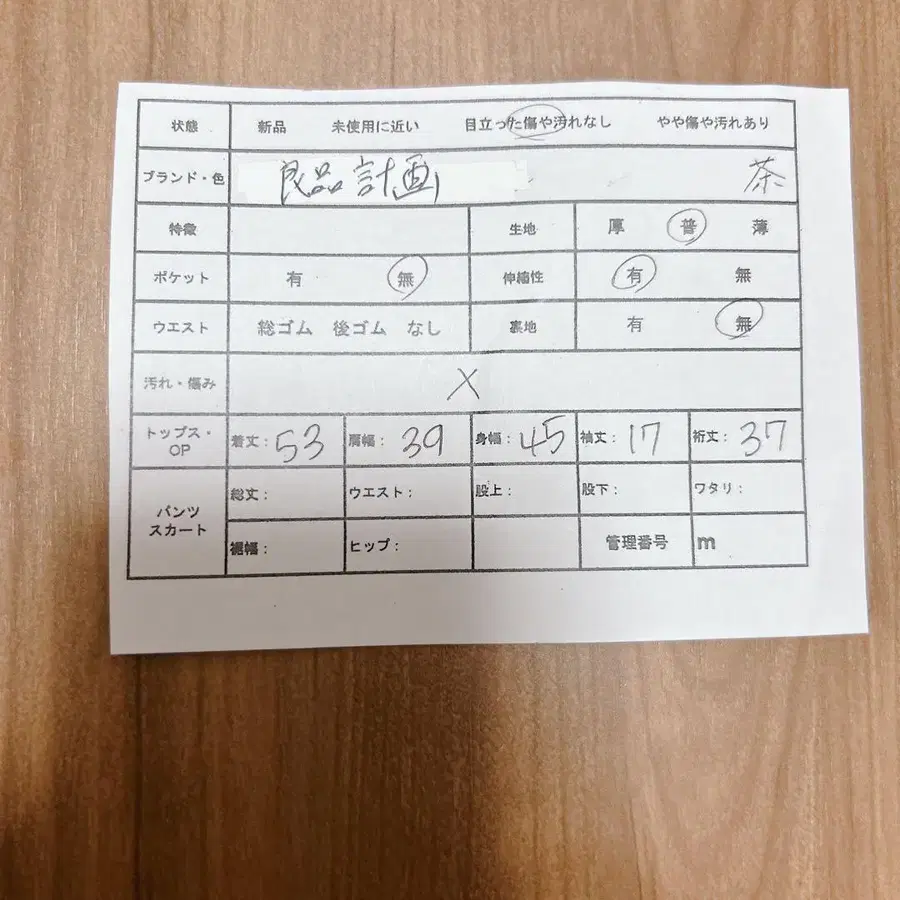 状態 新品 未使用に近い 目立った傷や汚れなし やや傷や汚れあり
ブランド・色 良品計画 茶
特徴 生地 厚 普 薄
ポケット 有 無 伸縮性 有 無
ウエスト 総ゴム 後ゴム なし 裏地 有 無
汚れ・傷み X
トップス・OP 着丈：53 肩幅：39 身幅：45 袖丈：17 裄丈：37
パンツ
スカート
総丈： ウエスト： 股上： 股下： ワタリ：
裾幅： ヒップ： 管理番号 m